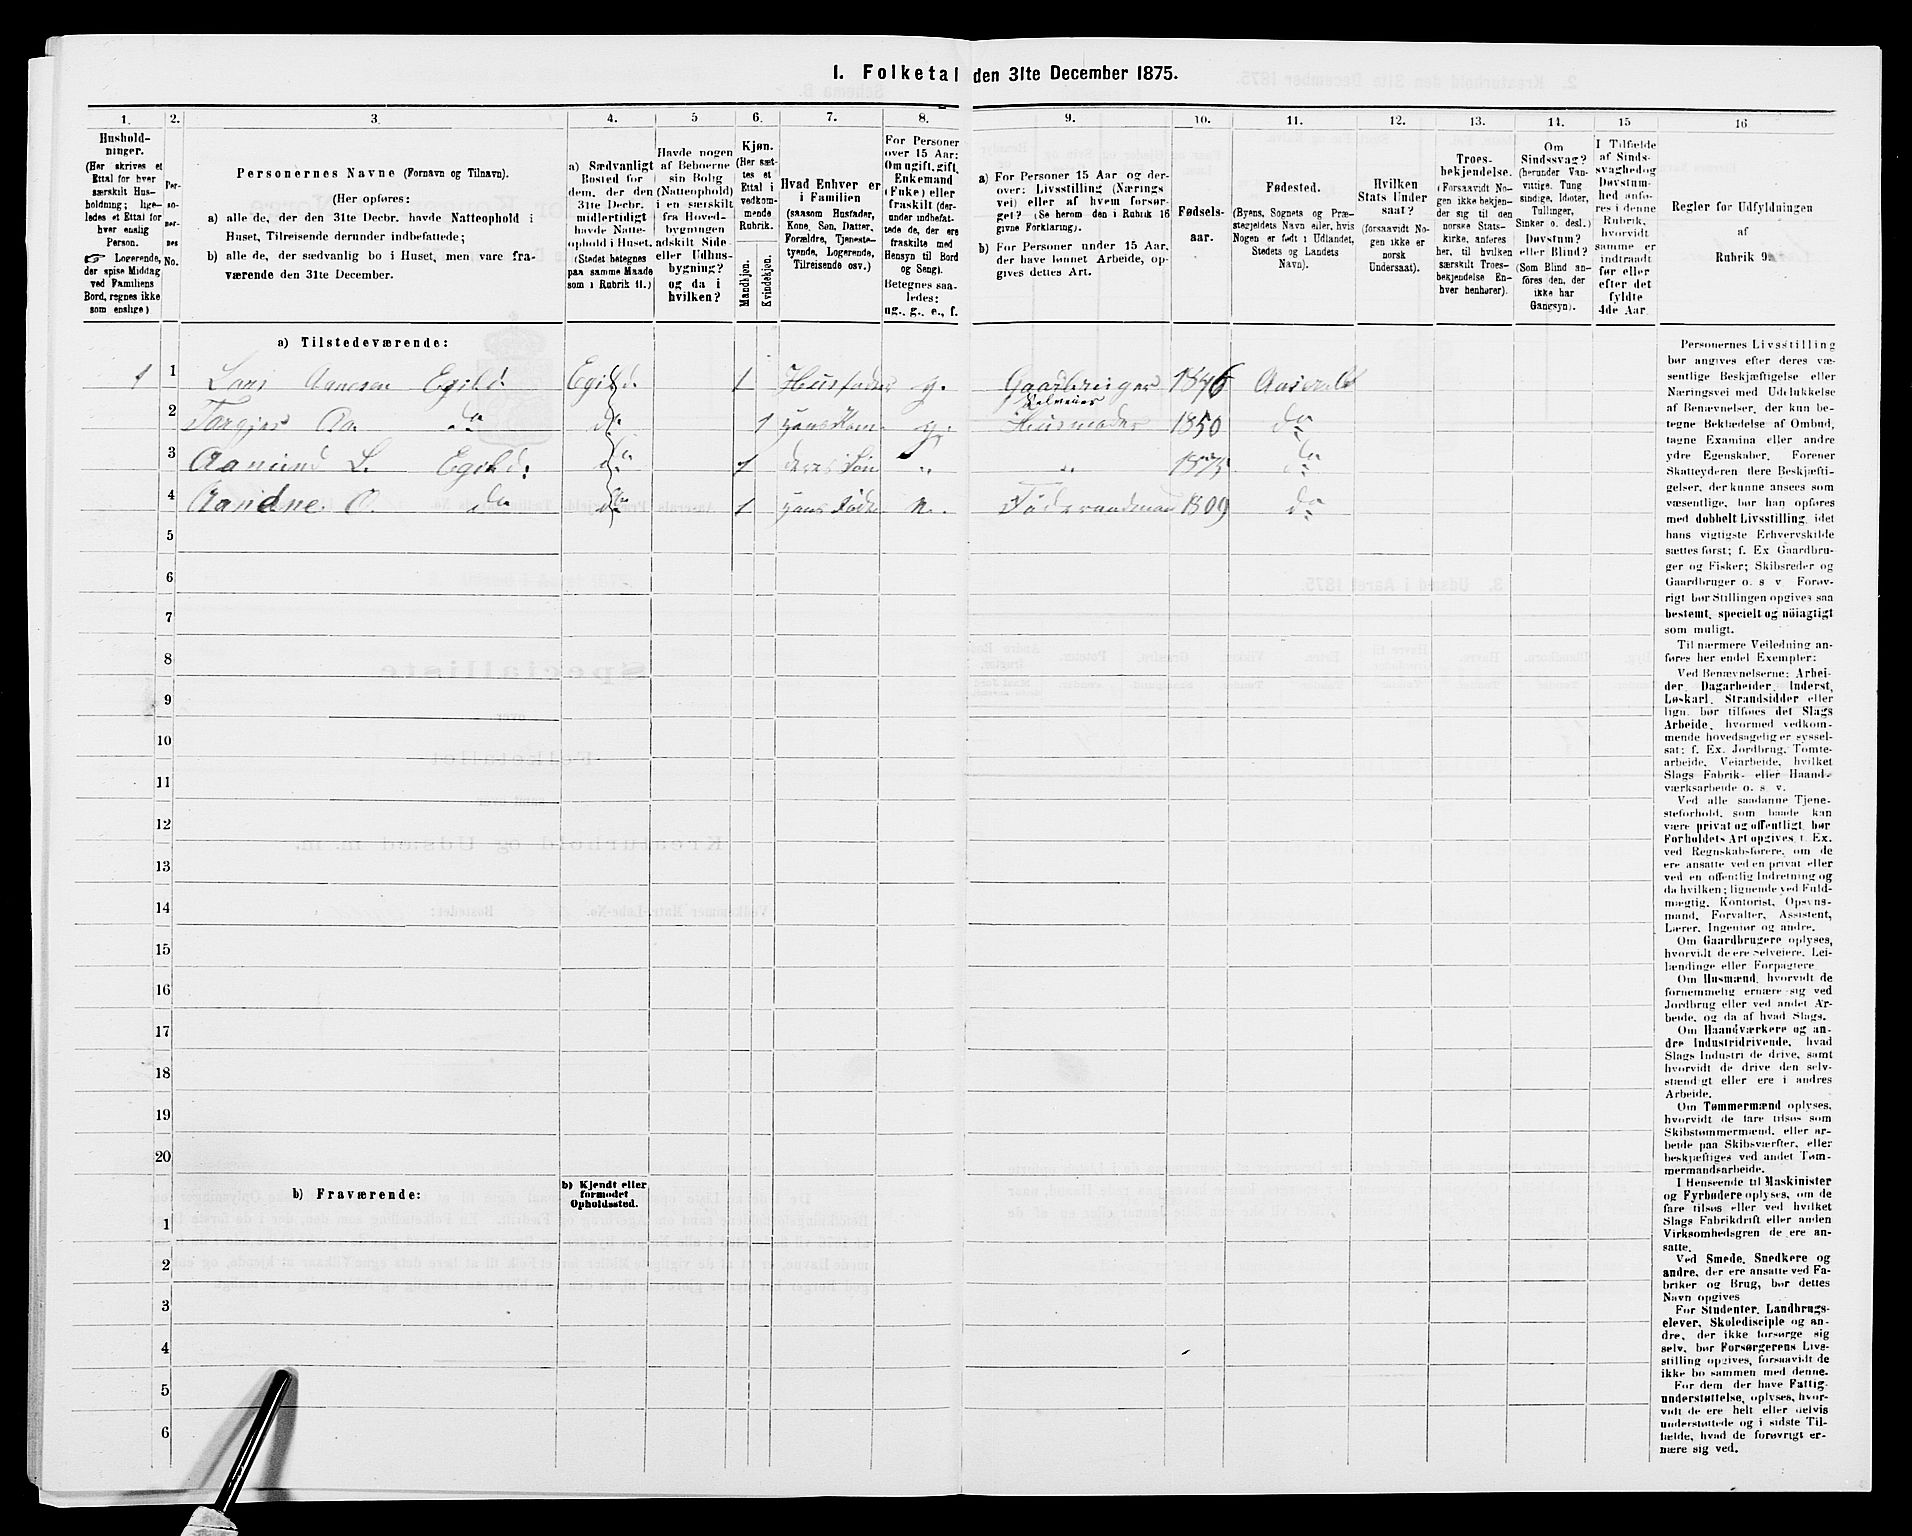 1. Folketal den 31te December 1875.
1.
2.
3.
4.
5
6.
7.
8.
9.
10.
11.
12.
13.
14.
15
16
Hushold-
ninger.
(Her skrives et
Ettal for hver
særskilt Hus-
holdning; lige-
ledes et Ettal for
hver enslig
Person.
☞ Logerende,
der spise Middag
ved Familiens
Bord, regnes ikke
som enslige)
Per-
so-
ner-
nes
No.
Personernes Navne (Fornavn og Tilnavn).
(Her opføres:
a) alle de, der den 31te Decbr. havde Natteophold i
Huset, Tilreisende derunder indbefattede;
b) alle de, der sædvanlig bo i Huset, men vare fra-
værende den 31te December.
a) Sædvanligt
Bosted for
dem, der den
31te Decbr.
midlertidigt
havde Natte-
ophold i Huset.
(Stedet betegnes
paa samme Maade
som i Rubrik 11.)
Havde nogen
af Beboerne
sin Bolig
(Natteophold)
i en særskilt
fra Hoved-
bygningen
adskilt Side-
eller Udhus-
bygning?
og da i
hvilken?
Kjøn.
(Her sæt-
tes et
Ettal i
vedkom-
mende
Rubrik.
Mandkjøn.
Kvindekjøn.
Hvad Enhver er
i Familien
(saasom Husfader,
Kone, Søn, Datter,
Forældre, Tjeneste-
tyende, Logerende,
Tilreisende osv.)
For Personer
over 15 Aar:
Om ugift, gift,
Enkemand
(Enke) eller
fraskilt (der-
under indbefat-
tede de, der ere
fraskilte med
Hensyn til Bord
og Seng).
Betegnes saa-
ledes:
ug., g., e., f.
a) For Personer 15 Aar og der-
over: Livsstilling (Nærings
vei) eller af hvem forsør-
get? (Se herom den i Rubrik 16
givne Forklaring).
b) For Personer under 15 Aar,
der have lønnet Arbeide, op-
gives dettes Art.
Fødsels-
aar.
Fødested.
(Byens, Sognets og Præ-
stegjeldets Navn eller, hvis
Nogen er født i Udlandet,
Stedets og Landets
Navn).
Hvilken
Stats Under
saat?
(forsaavidt No-
gen ikke er
norsk
Undersaat).
Troes-
bekjendelse.
(Forsaavidt No-
gen ikke bekjen-
der sig til den
norske Stats-
kirke, anføres
her, til hvilken
særskilt Troes-
bekjendelse En-
hver henhører).
Om
Sindssvag?
(herunder Van-
vittige, Tung
sindige, Idioter,
Tullinger,
Sinker o. desl.)
Døvstum?
eller Blind?
(Som Blind an-
føres den, der
ikke har
Gangsyn).
I Tilfælde
af Sinds-
svaghed og
Døvstum-
hed anfø-
res i denne
Rubrik,
hvorvidt
samme er
indtraadt
før eller
efter det
fyldte
4de Aar.
Regler for Udfyldningen
af
Rubrik 9.
a) Tilstedeværende:
1 1 Lars Aanesen Egild Egild. 1 Husfader g. Gaardbruger 1846 Aaseral
Selveier
2 Torgjer Aa. do do 1 hans Kone g. Husmoder 1850 do
3 Aamund L. Egild. do 1 deres Søn „ „ 1875 do
4 do do 1 1809 do
5
6
7
8
9
10
11
12
13
14
15
16
17
18
19
20
b) Fraværende:
b) Kjendt eller
formodet
Opholdssted.
1
2
3
4
5
6
Personernes Livsstilling
bør angives efter deres væ-
sentlige Beskjæftigelse eller
Næringsvei med Udelukkelse
af Benævnelser, der kun be-
tegne Beklædelse af Ombud,
tagne Examina eller andre
ydre Egenskaber. Forener
Skatteyderen flere Beskjæfti-
gelser, der kunne ansees som
væsentlige, bør han opføres
med dobbelt Livsstilling, idet
hans vigtigste Erhvervskilde
sættes først; f. Ex Gaardbru-
ger og Fisker; Skibsreder og
Gaardbruger o. s v Forøv-
rigt bør Stillingen opgives saa
bestemt, specielt og nöiagtigt
som muligt.
Til nærmere Veiledning an-
føres her endel Exempler:
Ved Benævnelserne: Arbei-
der, Dagarbeider, Inderst,
Løskarl, Strandsidder eller
lign. bør tilføies det Slags
Arbeide, hvormed vedkom-
mende hovedsagelig er syssel-
sat; f. Ex. Jordbrug, Tomte-
arbeide, Veiarbeide, hvilket
Slags Fabrik- eller Haand-
værksarbeide o. s. v.
Ved alle saadanne Tjene-
steforhold, som baade kan
være privat og offentligt, bør
Forholdets Art opgives, f. Ex.
ved Regnskabsførere, om de
ere ansatte ved en privat eller
ved en offentlig Indretning og
da hvilken; lignende ved Fuld-
mægtig, Kontorist, Opsyns-
mand, Forvalter, Assistent,
Lærer, Ingeniør og andre.
Om Gaardbrugere oplyses,
hvorvidt de ere Selveiere, Lei-
lændinge eller Forpagtere
Om Husmænd, hvorvidt de
fornemmelig ernære sig ved
Jordbrug eller ved andet Ar-
beide, og da af hvad Slags.
Om Haandværkere og an-
dre Industridrivende, hvad
Slags Industri de drive, samt
hvorvidt de drive den selv-
stændigt eller ere i andres
Arbeide.
Om Tømmermænd oplyses,
hvorvidt de fare tilsøs som
Skibstømmermænd, eller ar-
beide paa Skibsværfter, eller
beskjæftiges ved andet Tøm-
mermandsarbeide.
I Henseende til Maskinister
og Fyrbødere oplyses, om de
fare tilsøs eller ved hvilket
Slags Fabrikdrift eller anden
Virksomhedsgren de ere an-
satte.
Ved Smede, Snedkere og
andre, der ere ansatte ved Fa-
briker og Brug, bør dettes
Navn opgives
For Studenter, Landbrugs-
elever, Skoledisciple og an-
dre, der ikke forsørge sig
selv, bør Forsørgerens Livs-
stilling opgives, forsaavidt de
ikke bo sammen med denne.
For dem, der have Fattig-
understøttelse, oplyses, hvor-
vidt de ere helt eller delvis
understøttede og i sidste Til-
fælde, hvad de forøvrigt er-
nære sig ved.